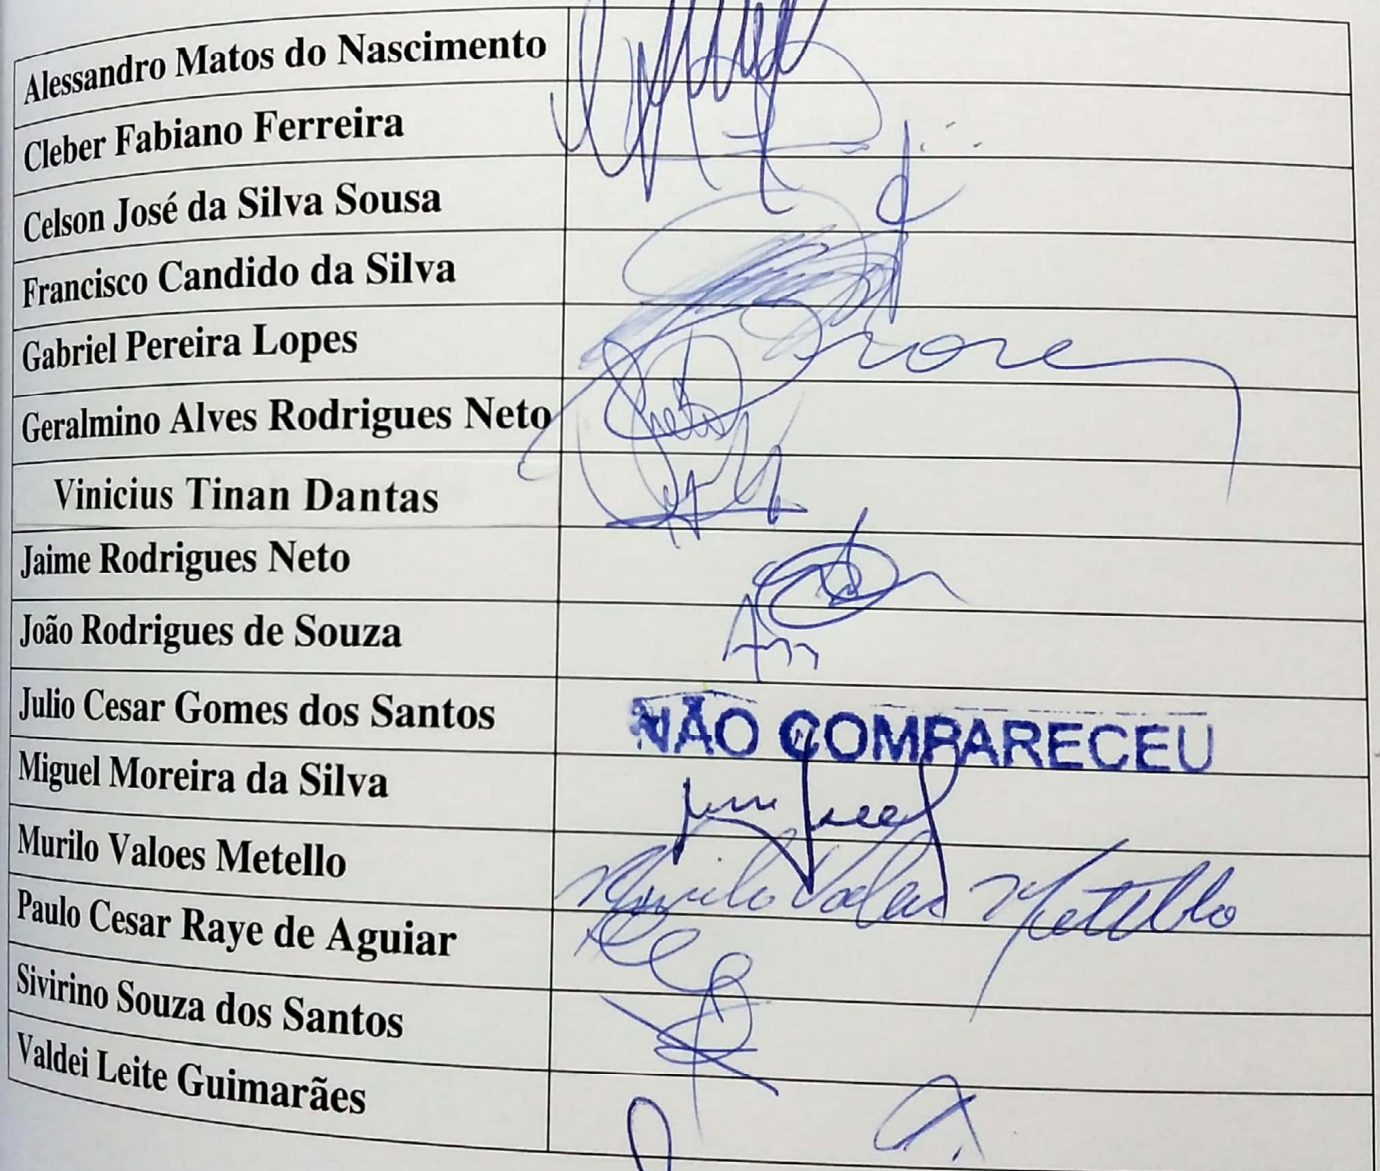 Alessandro Matos do Nascimento
Cleber Fabiano Ferreira
Celson José da Silva Sousa
Francisco Candido da Silva
Gabriel Pereira Lopes
Geralmino Alves Rodrigues Neto
Vinicius Tinan Dantas
Jaime Rodrigues Neto
João Rodrigues de Souza
Julio Cesar Gomes dos Santos NÃO COMPARECEU
Miguel Moreira da Silva
Murilo Valoes Metello Murilo Valoes Metello
Paulo Cesar Raye de Aguiar
Sivirino Souza dos Santos
Valdei Leite Guimarães